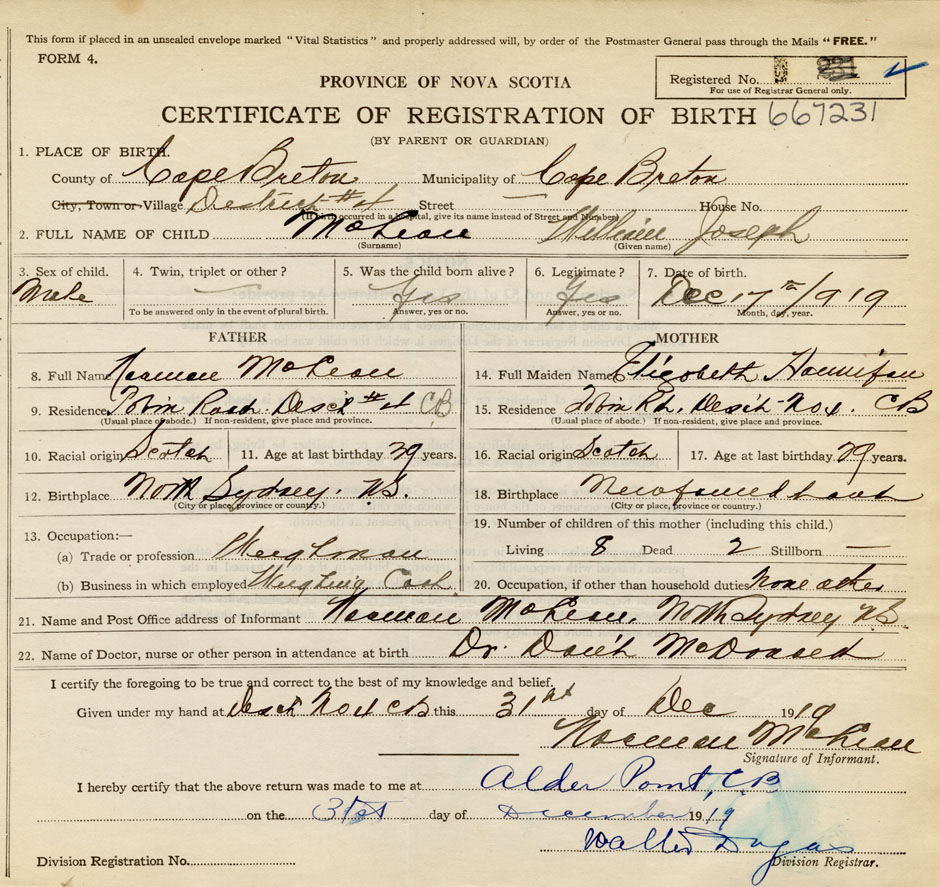 This form if placed in an unsealed envelope marked "Vital Statistics" and properly addressed will, by order of the Postmaster General pass through the Mails "FREE."
FORM 4.
Registered No. 231
For use of Registrar General only.
PROVINCE OF NOVA SCOTIA
CERTIFICATE OF REGISTRATION OF BIRTH 667231
(BY PARENT OR GUARDIAN)
1. PLACE OF BIRTH.
County of Cape Breton Municipality of Cape Breton
City, Town or Village District # Street — House No.
(If birth occurred in a hospital, give its name instead of Street and Number)
2. FULL NAME OF CHILD McLean William Joseph
(Surname) (Given name)
3. Sex of child. 4. Twin, triplet or other? 5. Was the child born alive? 6. Legitimate? 7. Date of birth.
Male — Yes Yes Dec 17th 1919
To be answered only in the event of plural birth. Answer, yes or no. Answer, yes or no. Month, day, year.
FATHER MOTHER
8. Full Name Norman McLean 14. Full Maiden Name Elizabeth Hannifan
9. Residence Tobin Road # CB 15. Residence Tobin Rd. CB
(Usual place of abode.) If non-resident, give place and province. (Usual place of abode.) If non-resident, give place and province.
10. Racial origin Scotch 11. Age at last birthday 39 years. 16. Racial origin Scotch 17. Age at last birthday 39 years.
12. Birthplace North Sydney. NS. 18. Birthplace Newfoundland
(City or place, province or country.) (City or place, province or country.)
13. Occupation:— 19. Number of children of this mother (including this child.)
(a) Trade or profession Weighman Living 8 Dead 2 Stillborn —
(b) Business in which employed Weighing Coal 20. Occupation, if other than household duties None other
21. Name and Post Office address of Informant Norman McLean, North Sydney NS.
22. Name of Doctor, nurse or other person in attendance at birth Dr. McDonald
I certify the foregoing to be true and correct to the best of my knowledge and belief.
Given under my hand at CB this 31st day of Dec 1919
Norman McLean
Signature of Informant.
I hereby certify that the above return was made to me at Alder Point, CB
on the 31st day of December 1919
Walter Dugas
Division Registration No. Division Registrar.